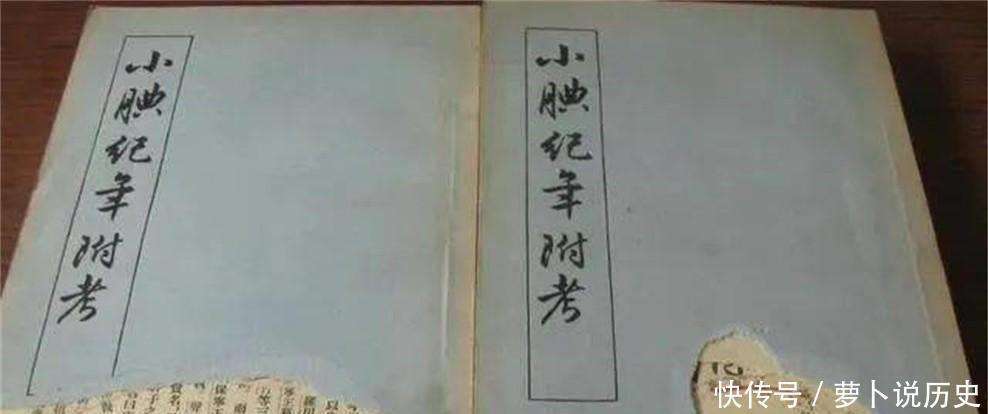 小腆纪年附考
小腆纪年附考
快传号 / 萝卜说历史